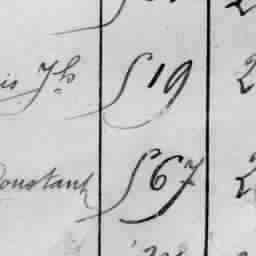 is Jh 519 2
Constant 567 2